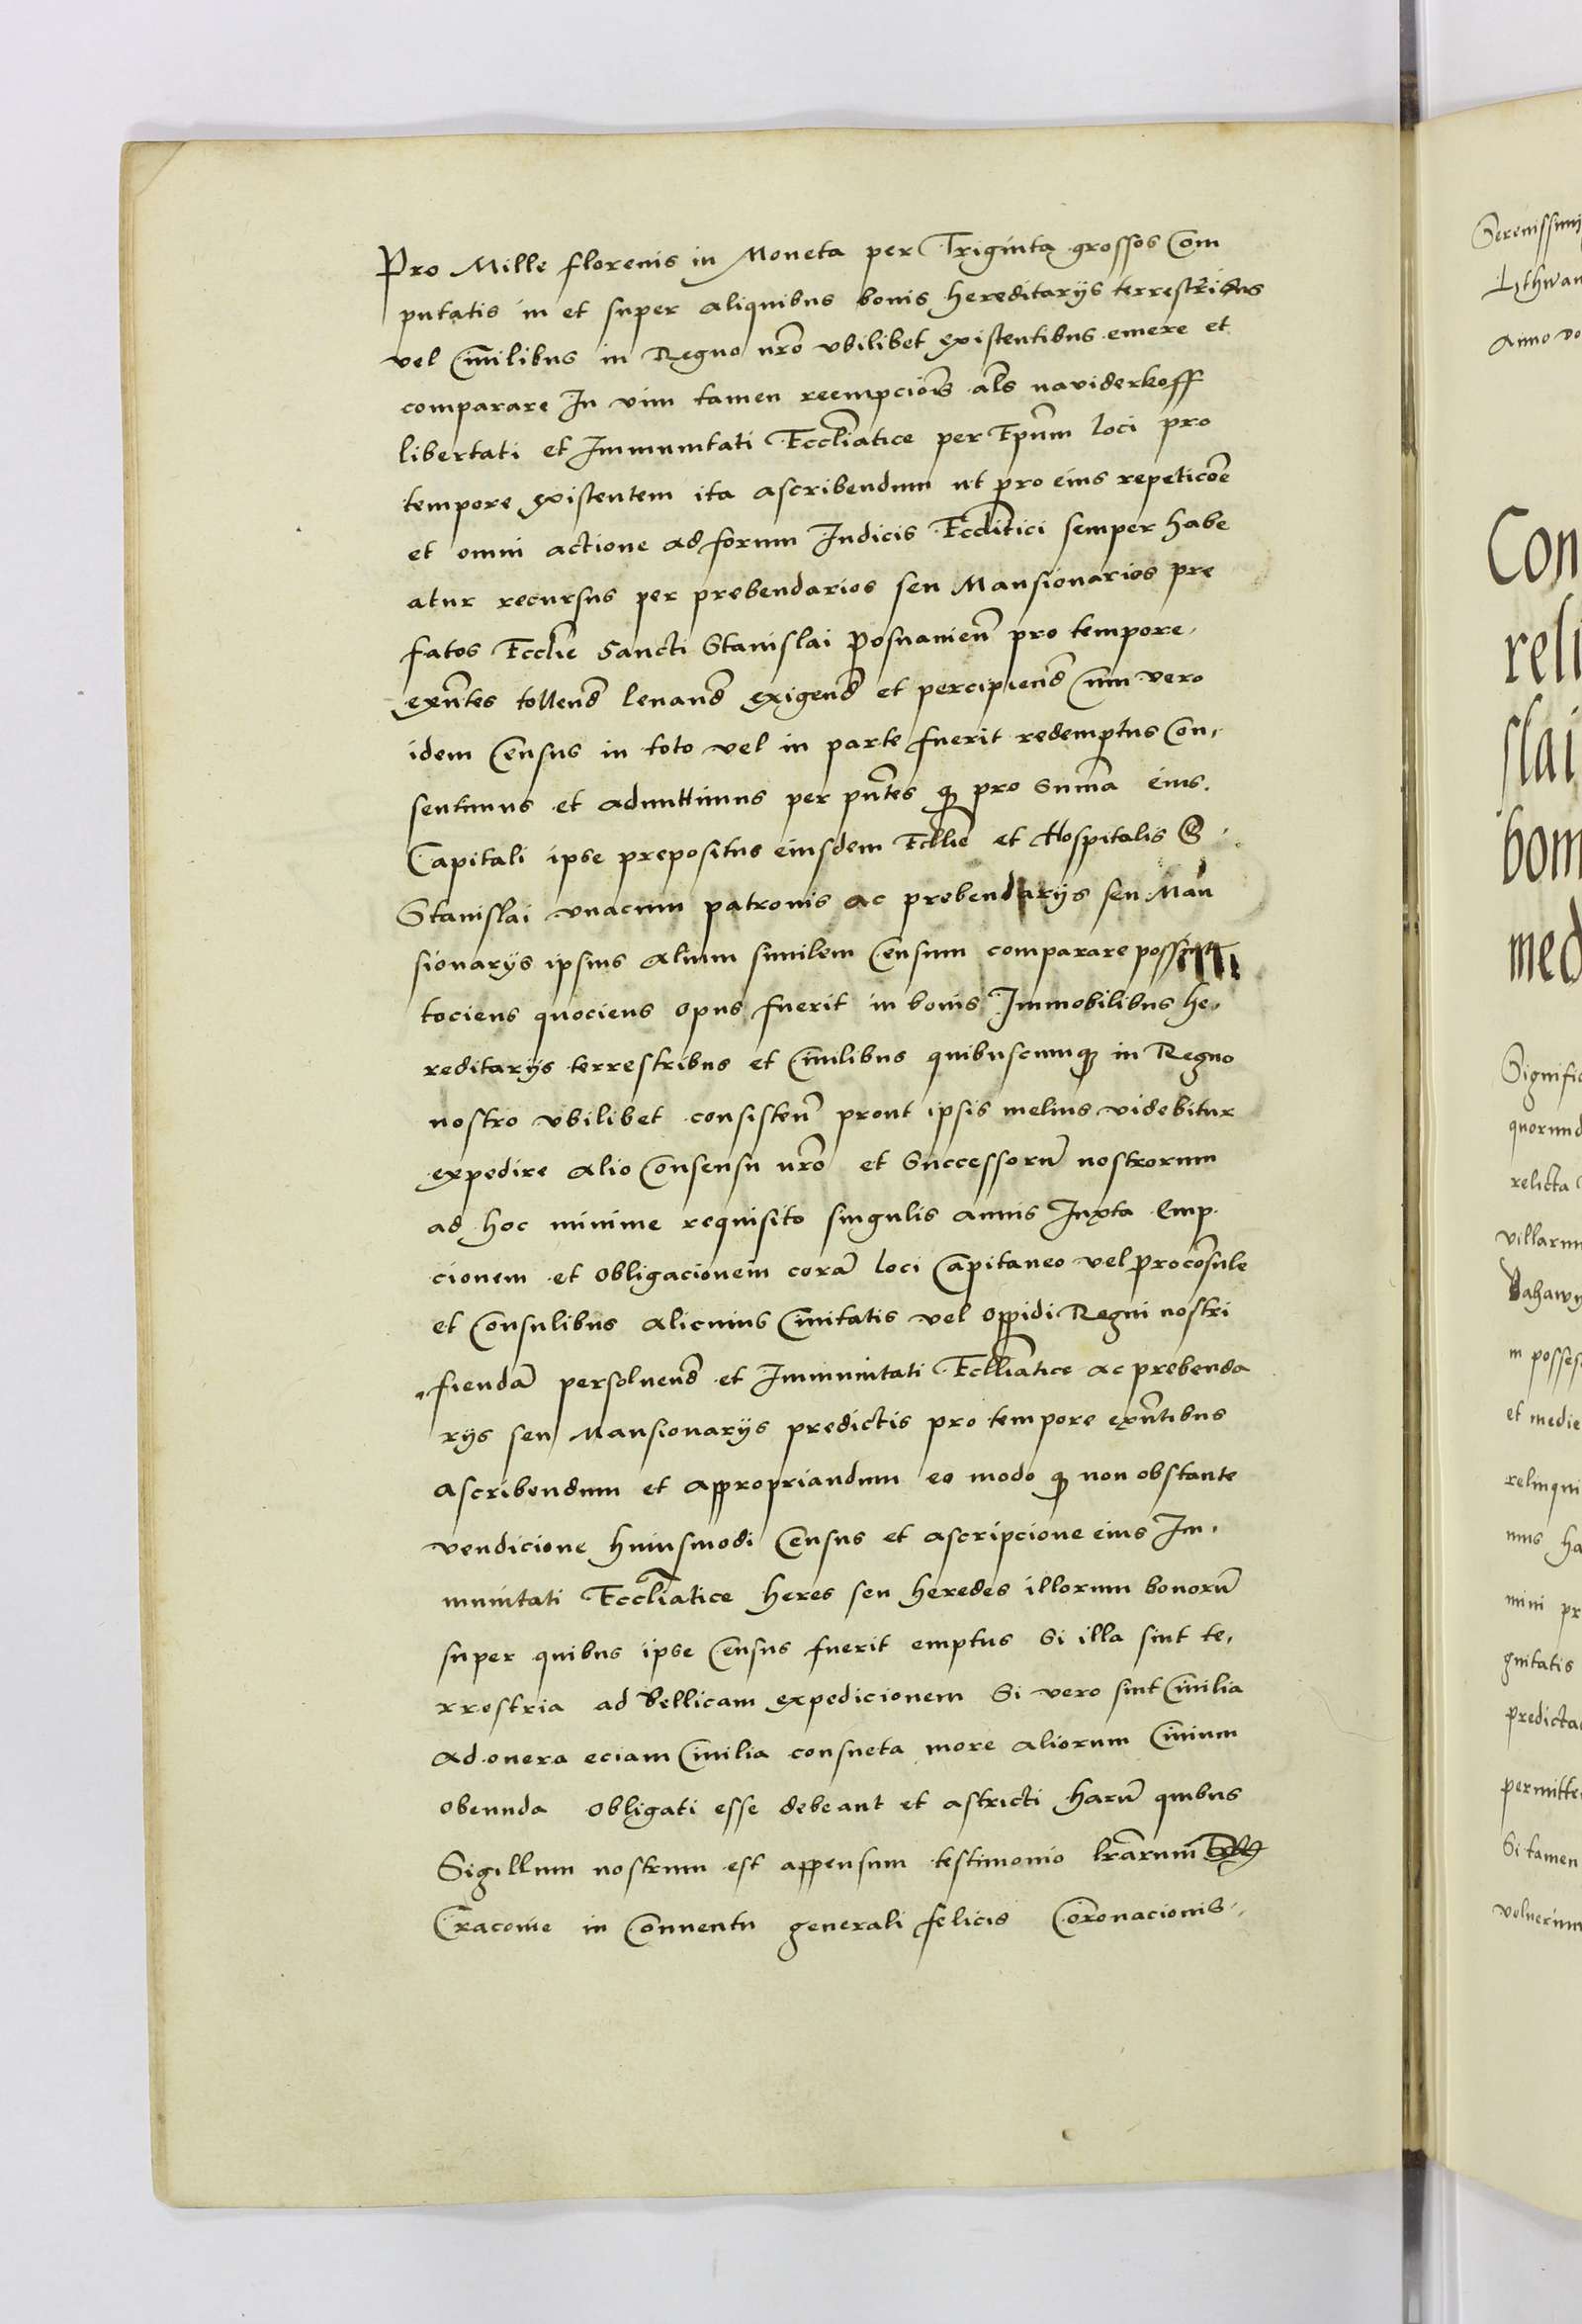 Pro Mille florenis in Moneta per Triginta grossos Com
putatis in et super aliquibus bonis hereditarijs terrestribus
vel Ciuilibus in Regno nro̅ vbilibet existentibus emere et
comparare In vim tamen reempcio̅is al̅s naviderkoff
libertati et Immunitati Eccl̅iastice per Ep̅um loci pro
tempore existentem ita ascribendum ut pro eius repetico̅e
et omni actione ad forum Iudicis Eccl̅itici semper habe
atur recursus per prebendarios seu Mansionarios pre
fatos Eccl̅ie Sancti Stanislai Posnanien̅ pro tempore
exn̅tes tollend̅ leuand̅ exigend̅ et percipiend̅ Cum vero
idem Census in toto vel in parte fuerit redemptus Con
sentimus et admittimus per pn̅tes q3 pro Sum̅a eius
Capitali ipse prepositus eiusdem Eccl̅ie et Hospitalis S
Stanislai vnacum patronis ac prebendarijs seu Man
sionarijs ipsius alium similem Censum comparare possint
tociens quociens opus fuerit in bonis Immobilibus he,
reditarijs terrestribus et Ciuilibus quibuscumq3 in Regno
nostro vbilibet consisten̅ prout ipsis melius videbitur
expedire alio Consensu nro̅ et Successoru̅ nostrorum
ad hoc minime requisito singulis annis Iuxta Emp
cionem et obligacionem cora̅ loci Capitaneo vel proco̅sule
et Consulibus alicuius Ciuitatis vel oppidi Regni nostri
fienda̅ persoluend̅ et Immunitati Eccl̅iatice ac prebenda
rijs seu Mansionarijs predictis pro tempore exn̅tibus
ascribendum et appropriandum eo modo q3 non obstante
vendicione huiusmodi Census et ascripcione eius Im,
munitati Eccl̅iatice heres seu heredes illorum bonoru̅
super quibus ipse Census fuerit emptus Si illa sint te,
rrestria ad bellicam expedicionem Si vero sint Ciuilia
ad onera eciam Ciuilia consueta more aliorum Ciuium
obeunda obligati esse debeant et astricti Haru̅ quibus
Sigillum nostrum est appensum testimonio lr̅arum
Cracouie in Conuentu generali felicis Coronacionis
Serenissimi
Lithwan
Anno do
Con
reli
slai
bom
med
Signific
quorund
relicta
villarum
m posses
et medie
relinqui
mus ha
mini pr
gnitatis
predicta
permitte
Si tamen
voluerim